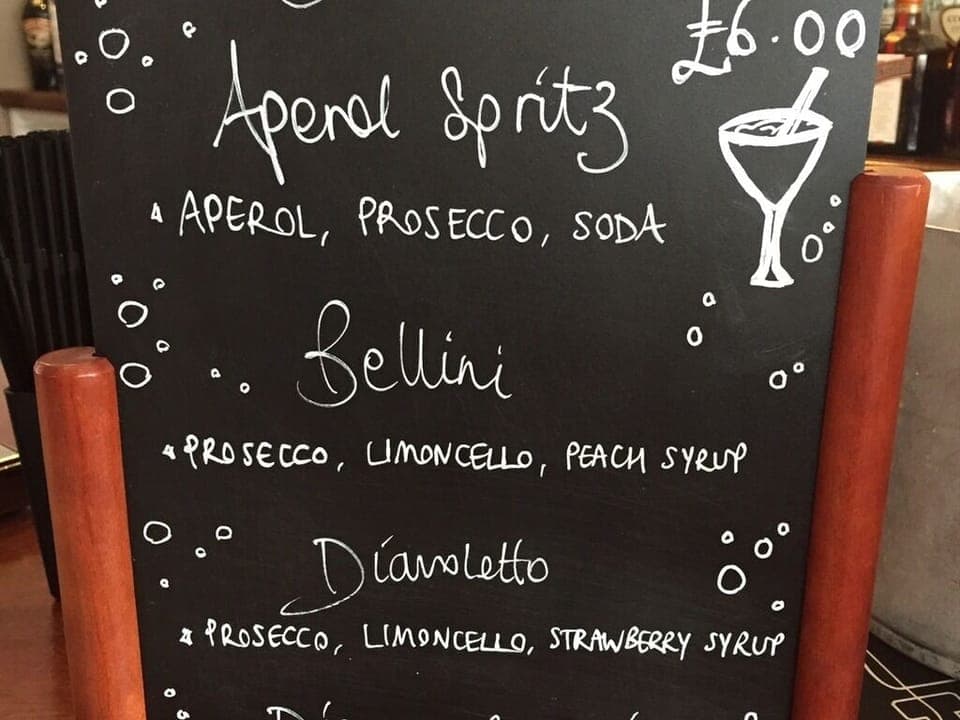 £6.00
Aperol Spritz
APEROL, PROSECCO, SODA
Bellini
PROSECCO, LIMONCELLO, PEACH SYRUP
Diavoletto
PROSECCO, LIMONCELLO, STRAWBERRY SYRUP